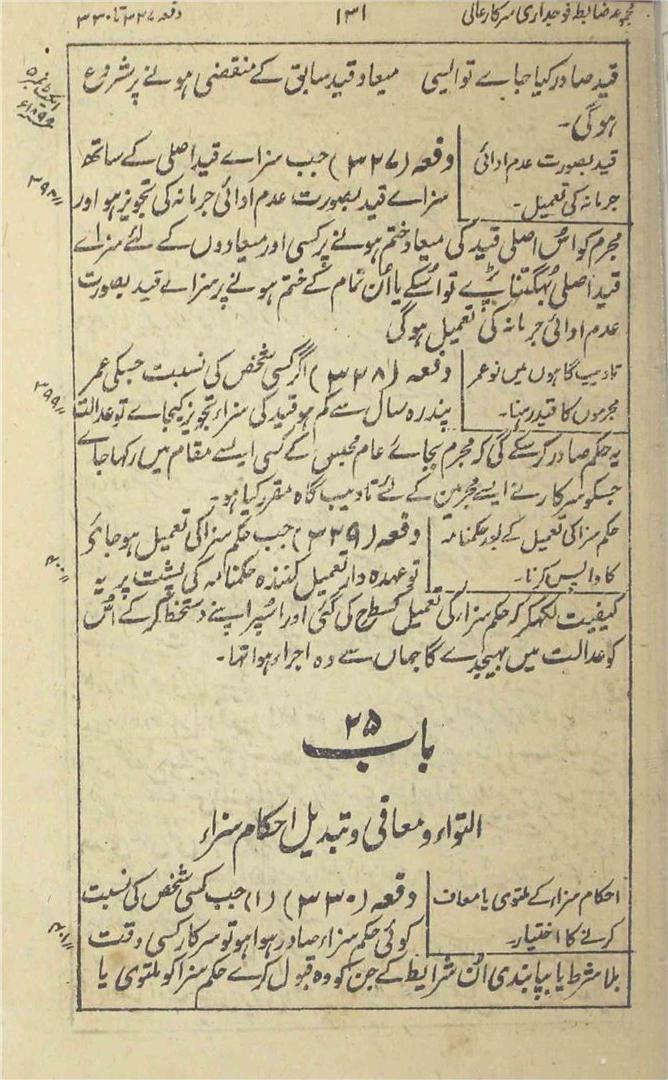 مجموعہ ضابطہ فوجداری سرکار عالی
۱۳۱
دفعہ ۳۲۷ تا ۳۳۰
قید صادر کیا جاے تو ایسی میعاد قید سابق کے منقضی ہونے پر شروع
ہوگی۔
قید بصورت عدم ادائی
جرمانہ کی تعمیل۔
دفعہ (۳۲۷) جب سزاے قید اصلی کے ساتھ
سزاے قید بصورت عدم ادائی جرمانہ کی تجویز ہو اور
مجرم کو اس اصلی قید کی میعاد ختم ہونے پر کسی اور میعادوں کے لئے سزاے
قید اصلی بُھگتنا پڑے تو اُسکے یا اُن تمام کے ختم ہونے پر سزاے قید بصورت
عدم ادائی جرمانہ کی تعمیل ہوگی
تادیب گاہوں میں نوعمر
مجرموں کا قید رہنا۔
دفعہ (۳۲۸) اگر کسی شخص کی نسبت جسکی عمر
پندرہ سال سے کم ہو قید کی سزاء تجویز کیجاے تو عدالت
۳۹۹〃
یہ حکم صادر کرسکے گی کہ مجرم بجاے عام محبس کے کسی ایسے مقام میں رکہا جاے
جسکو سرکار نے ایسے مجرمین کے لئے تادیب گاہ مقرر کیا ہو۔
حکم سزا کی تعمیل کے بعد حکمنامہ
کا واپس کرنا۔
دفعہ (۳۲۹) جب حکم سزا کی تعمیل ہو جائے
تو عہدہ دار تعمیل کنندہ حکمنامہ کی پشت پر یہ
۴۰۰〃
کیفیت لکھکر کہ حکم سزاء کی تعمیل کسطرح کی گئی اور اسپر اپنے دستخط کر کے اُس
کو عدالت میں بہیجدے گا جہاں سے وہ اجراء ہوا تہا۔
باب ۲۵
التواء و معافی و تبدیل احکام سزاء
احکام سزاء کے ملتوی یا معاف
کرنے کا اختیار۔
دفعہ (۳۳۰) (۱) جب کسی شخص کی نسبت
کوئی حکم سزاء صادر ہوا ہو تو سرکار کسی وقت
۴۰۱〃
بلا شرط یا بپابندی اُن شرایط کے جن کو وہ قبول کرے حکم سزا کو ملتوی یا